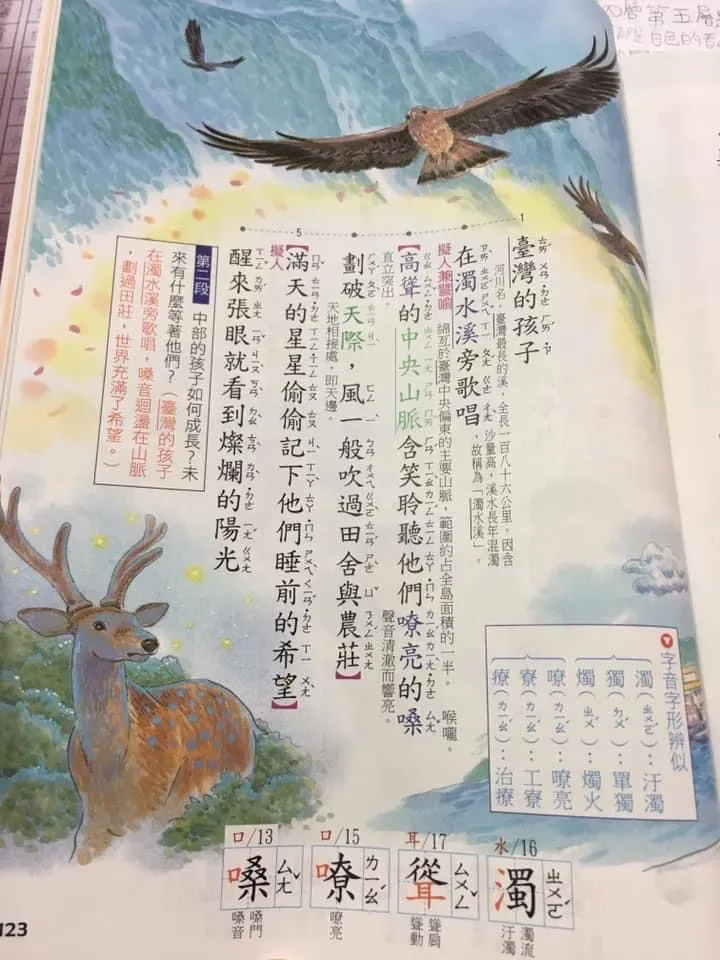 臺灣的孩子
河川名，臺灣最長的溪，全長一百八十六公里。因含
沙量高，溪水長年混濁
，故稱為「濁水溪」。
在濁水溪旁歌唱
擬人兼譬喻
綿亙於臺灣中央偏東的主要山脈，範圍約占全島面積的一半。
喉嚨。
【高聳的中央山脈含笑聆聽他們嘹亮的嗓
直立突出。
聲音清澈而響亮。
劃破天際，風一般吹過田舍與農莊】
天地相接處，即天邊。
擬人
【滿天的星星偷偷記下他們睡前的希望】
醒來張眼就看到燦爛的陽光
1
5
第二段
中部的孩子如何成長？未
來有什麼等著他們？（臺灣的孩子
在濁水溪旁歌唱，嗓音迴盪在山脈
，劃過田莊，世界充滿了希望。）
字音字形辨似
濁（ㄓㄨㄛˊ）：汙濁
獨（ㄉㄨˊ）：單獨
燭（ㄓㄨˊ）：燭火
嘹（ㄌㄧㄠˊ）：嘹亮
寮（ㄌㄧㄠˊ）：工寮
療（ㄌㄧㄠˊ）：治療
水/16
濁 ㄓㄨㄛˊ
濁流
汙濁
耳/17
聳 ㄙㄨㄥˇ
聳肩
聳動
口/15
嘹 ㄌㄧㄠˊ
嘹亮
口/13
嗓 ㄙㄤˇ
嗓門
嗓音
123